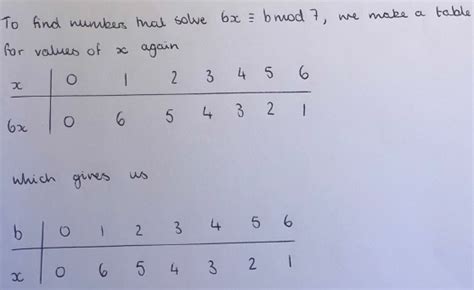 To find numbers that solve 6x ≡ b mod 7, we make a table
for values of x again
x | 0 1 2 3 4 5 6
6x | 0 6 5 4 3 2 1
which gives us
b | 0 1 2 3 4 5 6
x | 0 6 5 4 3 2 1